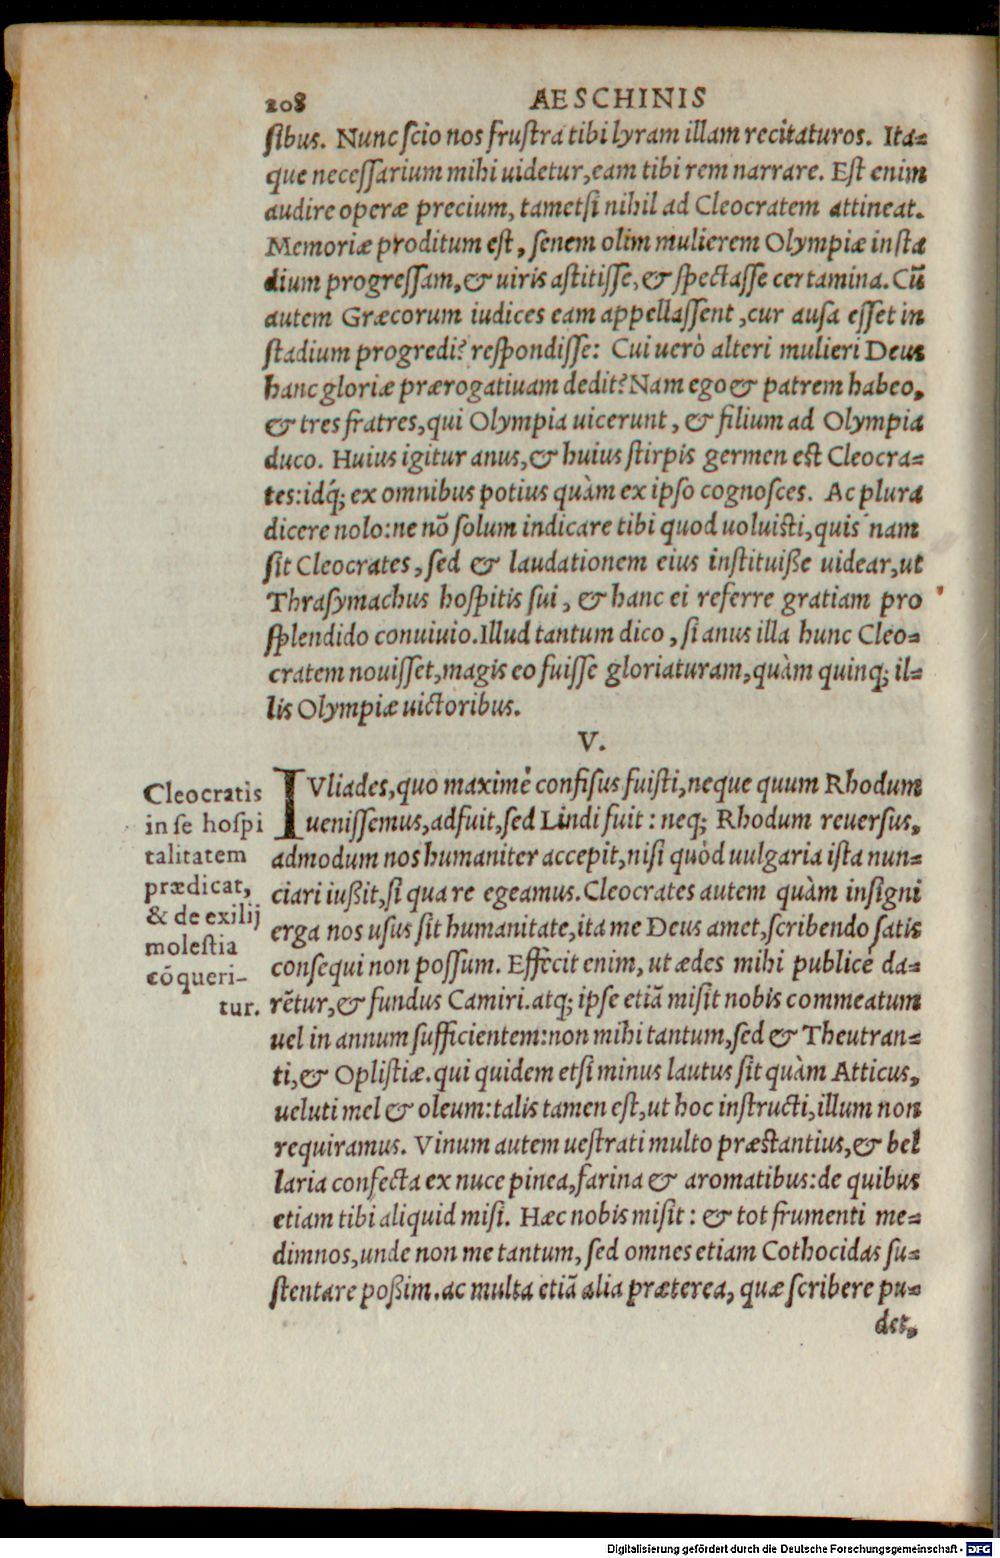 208 AESCHINIS
ſibus. Nunc ſcio nos fruſtra tibi lyram illam recitaturos. Ita-
que neceſſarium mihi uidetur, eam tibi rem narrare. Eſt enim
audire operæ precium, tametſi nihil ad Cleocratem attineat.
Memoriæ proditum eſt, ſenem olim mulierem Olympiæ in ſta
dium progreſſam, & uiris aſtitiſſe, & ſpectaſſe certamina. Cū
autem Græcorum iudices eam appellaſſent, cur auſa eſſet in
ſtadium progredi? reſpondiſſe: Cui uerò alteri mulieri Deus
hanc gloriæ prærogatiuam dedit? Nam ego & patrem habeo,
& tres fratres, qui Olympia uicerunt, & filium ad Olympia
duco. Huius igitur anus, & huius ſtirpis germen eſt Cleocra-
tes: idq́; ex omnibus potius quàm ex ipſo cognoſces. Ac plura
dicere nolo: ne nō ſolum indicare tibi quod uoluiſti, quis nam
ſit Cleocrates, ſed & laudationem eius inſtituiße uidear, ut
Thraſymachus hoſpitis ſui, & hanc ei referre gratiam pro
ſplendido conuiuio. Illud tantum dico, ſi anus illa hunc Cleo-
cratem nouiſſet, magis eo fuiſſe gloriaturam, quàm quinq; il-
lis Olympiæ uictoribus.
V.
IVliades, quo maximè confiſus fuiſti, neque quum Rhodum
ueniſſemus, adfuit, ſed Lindi fuit: neq; Rhodum reuerſus,
admodum nos humaniter accepit, niſi quòd uulgaria iſta nun-
ciari iußit, ſi qua re egeamus. Cleocrates autem quàm inſigni
erga nos uſus ſit humanitate, ita me Deus amet, ſcribendo ſatis
conſequi non poſſum. Effecit enim, ut ædes mihi publicè da-
rētur, & fundus Camiri. atq; ipſe etiā miſit nobis commeatum
uel in annum ſufficientem: non mihi tantum, ſed & Theutran-
ti, & Opliſtiæ. qui quidem etſi minus lautus ſit quàm Atticus,
ueluti mel & oleum: talis tamen eſt, ut hoc inſtructi, illum non
requiramus. Vinum autem ueſtrati multo præſtantius, & bel
laria confecta ex nuce pinea, farina & aromatibus: de quibus
etiam tibi aliquid miſi. Hæc nobis miſit: & tot frumenti me-
dimnos, unde non me tantum, ſed omnes etiam Cothocidas ſu-
ſtentare poßim. ac multa etiā alia præterea, quæ ſcribere pu-
det,
Cleocratis
in ſe hoſpi
talitatem
prædicat,
& de exilij
moleſtia
cōqueri-
tur.
Digitalisierung gefördert durch die Deutsche Forschungsgemeinschaft - DFG